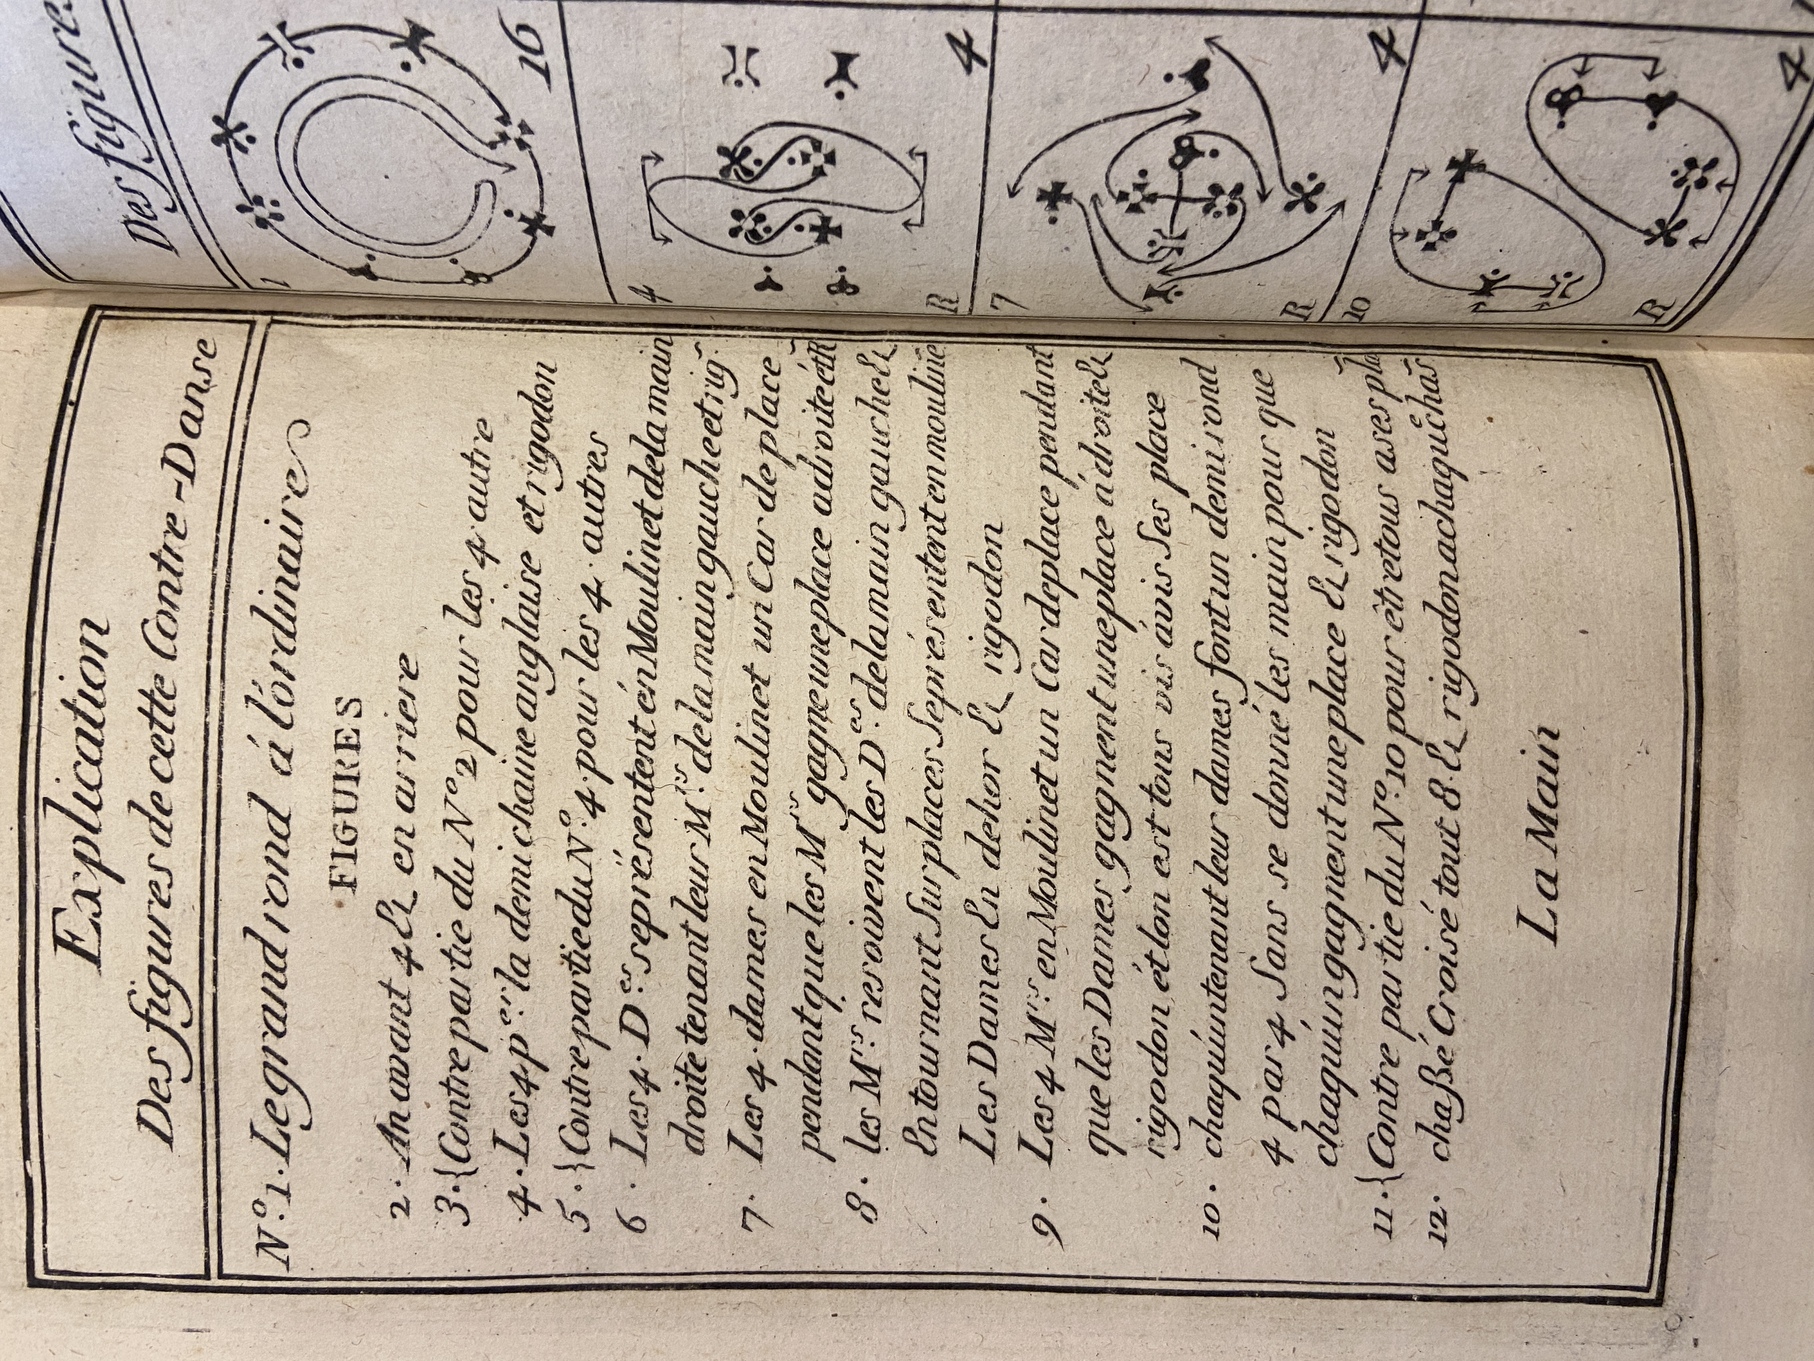 Explication
Des figures de cette Contre-Danse
N.º 1. Le grand rond á l'ordinaire
FIGURES
2. An avant 4 & en arriere
3. {Contre partie du N.º 2 pour les 4 autre
4. Les 4 p.ers la demi chaine anglaise et rigodon
5. {Contre partie du N.º 4 pour les 4 autres
6. Les 4. D.es se présentent én Moulinet de la main
droite tenant leur M.rs de la main gauche et rig.
7. Les 4. dames en Moulinet un Car de place
pendant que les M.rs gagne une place a droite et R
8. les M.rs resoivent les D.es de la main gauche &
En tournant Sur places Se présentent en mouline
Les Dames En dehor & rigodon
9. Les 4 M.rs en Moulinet un Car de place pendant
que les Dames gagnent une place á droite &
rigodon ét lon est tous vis ávis Ses place
10. chaqu'un tenant leur dames font un demi rond
4 par 4 Sans se donné les main pour que
chaqu'un gagnent une place & rigodon
11. {Contre partie du N.º 10 pour être tous a ses pla
12. chaßé Croisé tout 8. & rigodon a chaqu chas
La Main
Des figures
1
16
4
R
4
7
R
4
10
R
4